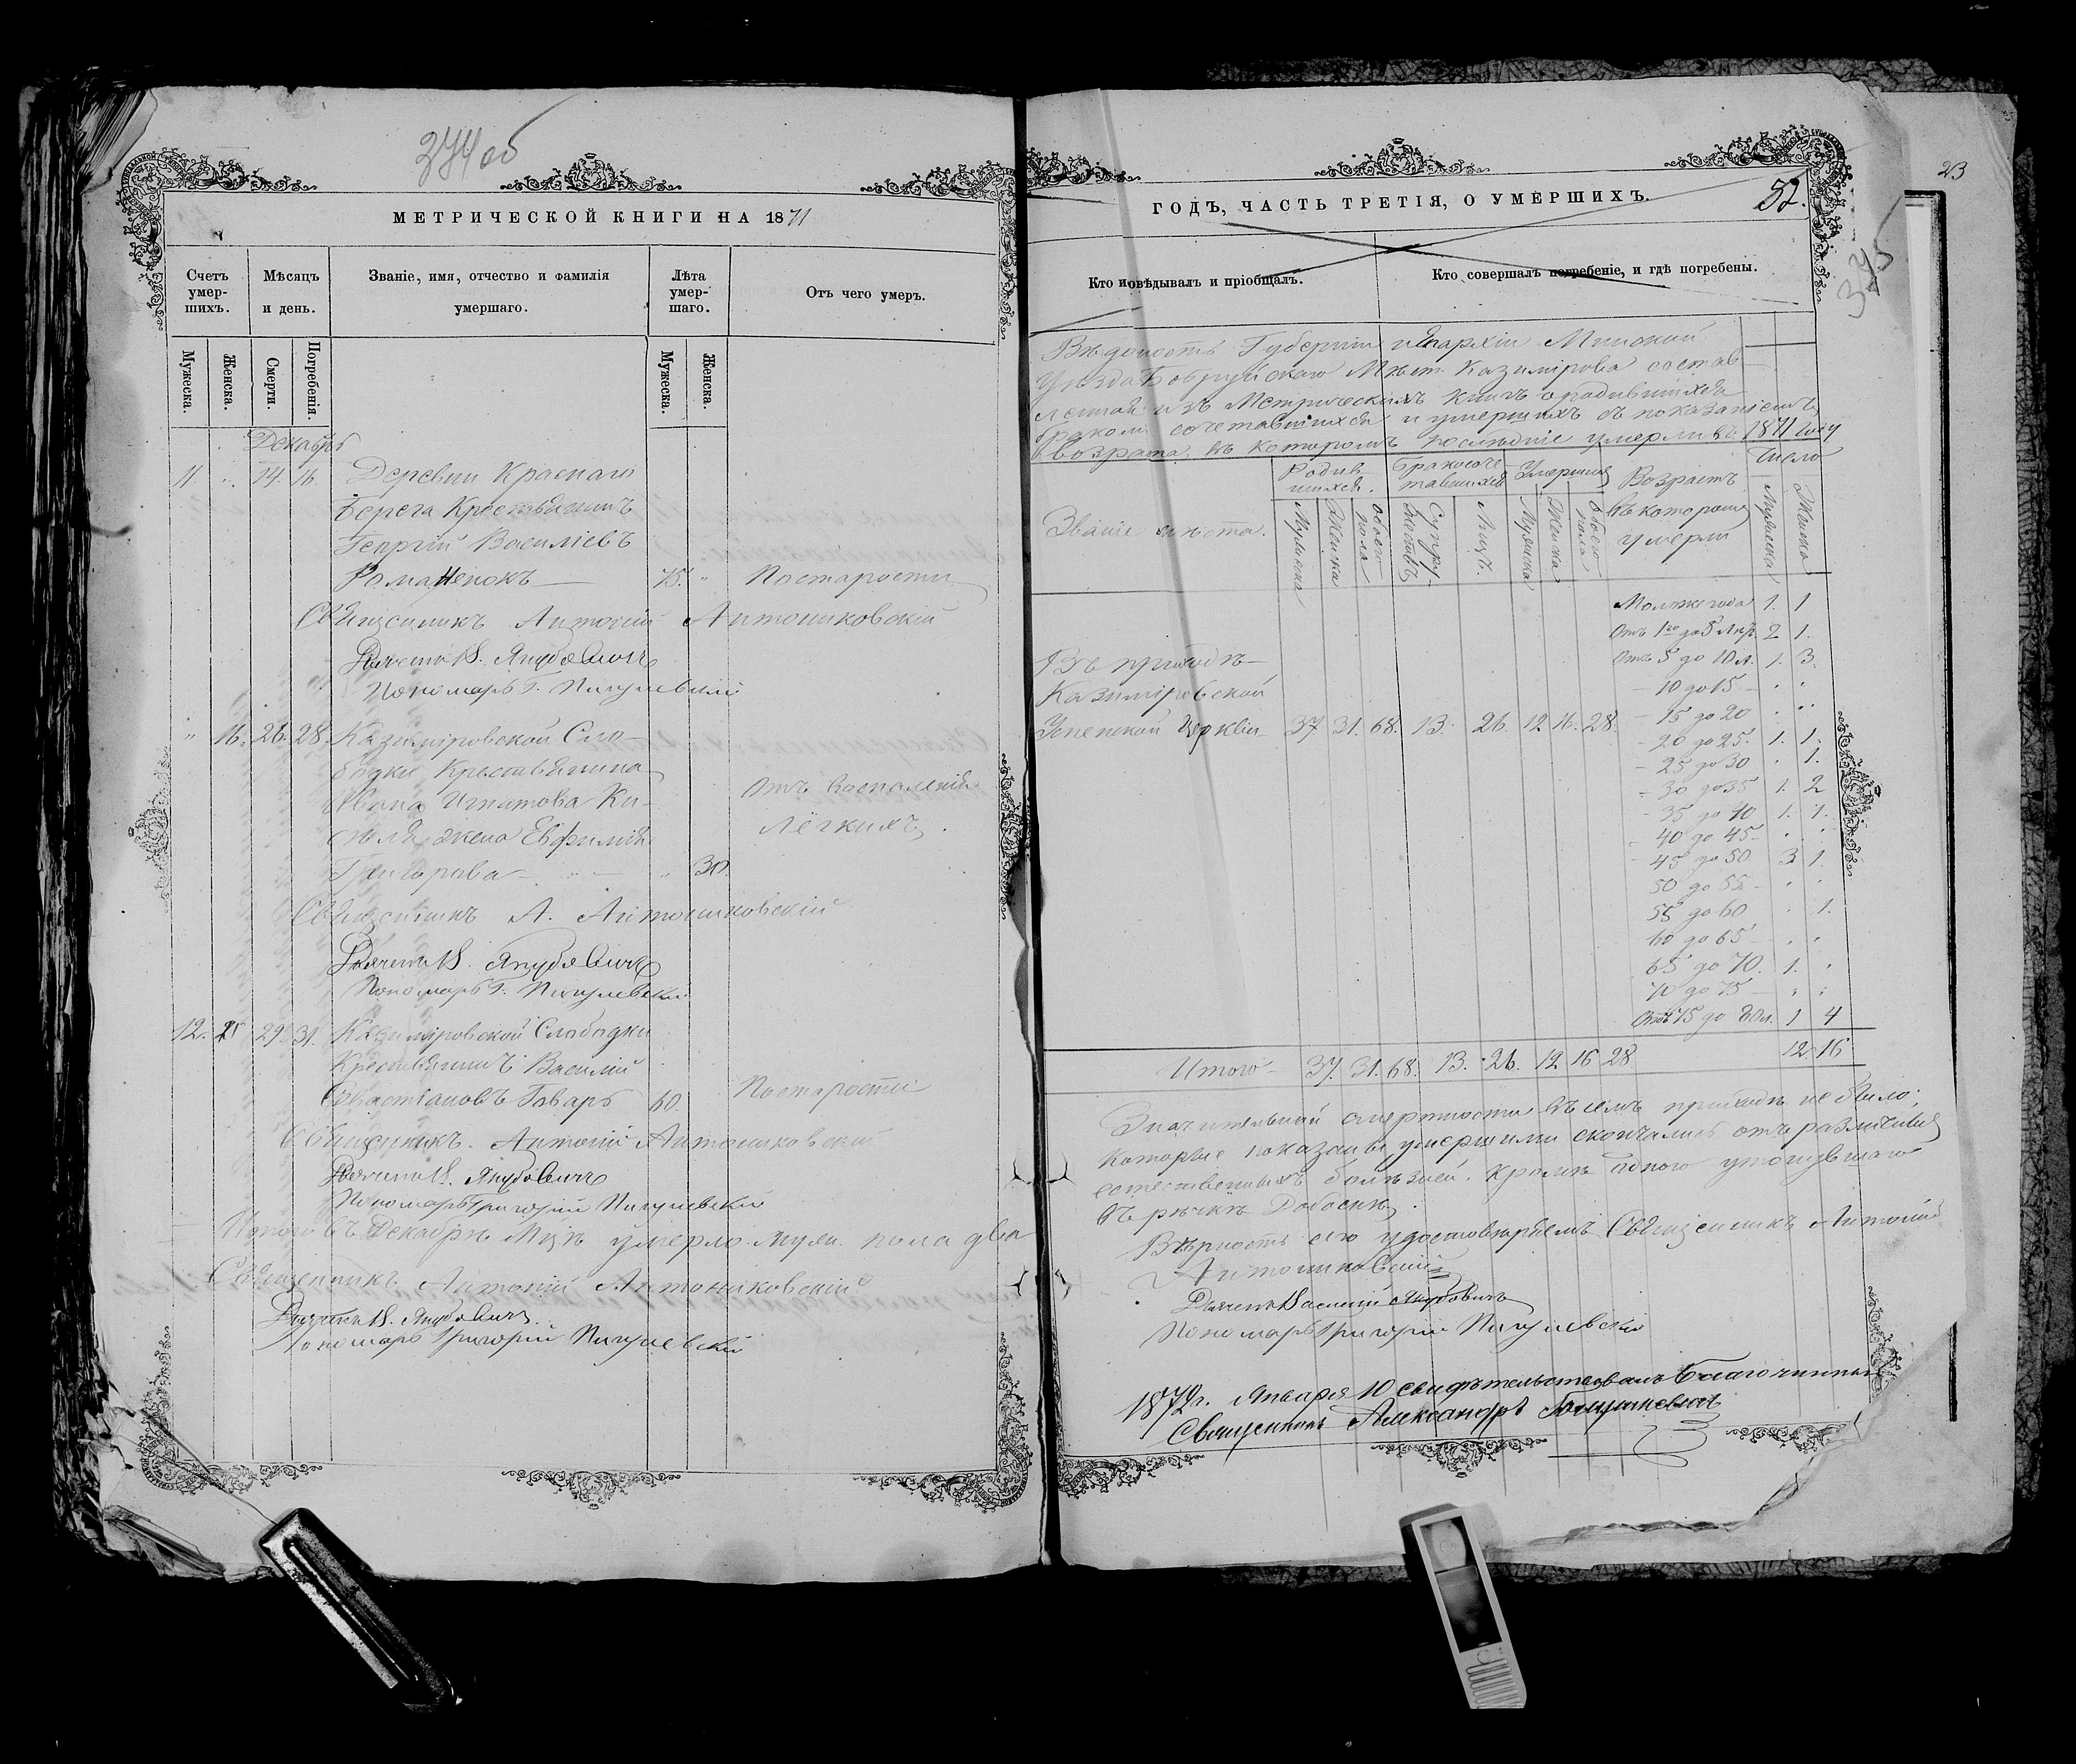 274об
МЕТРИЧЕСКОЙ КНИГИ НА 1871
Счетъ умер-шихъ.
Мѣсяцъ и день.
Званіе, имя, отчество и фамилія умершаго.
Лѣта умер-шаго.
Отъ чего умеръ.
Мужеска.
Женска.
Смерти.
Погребенія.
Мужеска.
Женска.
Декабрь
11 " 14. 16. Деревни Краснаго
Берега Крестьянинъ
Георгій Василіевъ
Романенокъ 75. " По старости
Священникъ Антоній Антониковскій
Дьячекъ В. Якубовичъ
Пономарь Г. Пигулевскій
" 16. 26. 28. Казиміровской Сло-
бодки Крестьянина
Ивана Игнатова Ки-
селя жена Евфимія
Отъ воспаленія
Лёгкихъ.
Григорова " 30.
Священникъ А. Антониковскій
Дьячекъ В. Якубовичъ
Пономарь Г. Пигулевскій
12. 29 31. Казиміровской Слободки
Крестьянинъ Василій
Говаръ 60. По старости
Священникъ Антоній Антониковскій
Дьячекъ В. Якубовичъ
Пономарь Григорій Пигулевскій
въ Декабрѣ Мцѣ умерло муж. пола два
Священникъ Антоній Антониковскій
Дьячекъ В. Якубовичъ.
Пономарь Григорій Пигулевскій
23
ГОДЪ, ЧАСТЬ ТРЕТІЯ, О УМЕРШИХЪ.
52.
345
Кто исповѣдывалъ и пріобщалъ.
Кто совершалъ погребеніе, и гдѣ погребены.
Вѣдомость Губерніи и Епархіи Минской
Уѣзда Бобруйскаго Мѣст. Казимірова состав-
ленная изъ Метрическихъ Книгъ о родившихся
бракомъ сочетавшихся и умершихъ съ показаніемъ
возраста въ которомъ послѣдніе умерли въ 1871 году
Званіе мѣста.
Родив-шихся.
Бракосоче-тавшихся
Умершихъ
Возрастъ въ которомъ умерли
Число
Мужеска
Женска
обоего пола
Супру-жествъ
Лицъ.
Мужеска
Женска
обоего пола
Мужеска
Женска
Моложе года 1. 1
Отъ 1го до 5 лѣт 2 1.
Отъ 5 до 10 л. 1. 3.
Въ приходѣ
Казиміровской
Успенской Церкви 37 31. 68. 13. 26. 12 16. 28.
10 до 15 " "
15 до 20 " "
20 до 25. 1. 1.
25 до 30 " 1.
30 до 35 1. 2
35 до 40 1. 1.
40 до 45 " "
45 до 50 3 1.
50 до 55 " "
55 до 60 " 1.
60 до 65 " "
65 до 70. 1. "
70 до 75 " "
Отъ 75 до 80 л. 1 4
Итого 37. 31. 68. 13. 26. 12 16 28 12. 16
Значительной смертности въ семъ приходѣ не было;
которые показаны умершими скончались отъ различныхъ
естественныхъ болѣзней, кромѣ одного утонувшаго
въ рѣчкѣ Добоснѣ.
Вѣрность сего удостовѣряемъ Священникъ Антоній
Антониковскій
Дьячекъ Василій Якубовичъ
Пономарь Григорій Пигулевскій
1872 г. Января 10 свидѣтельствовалъ Благочинный
Священникъ Александръ